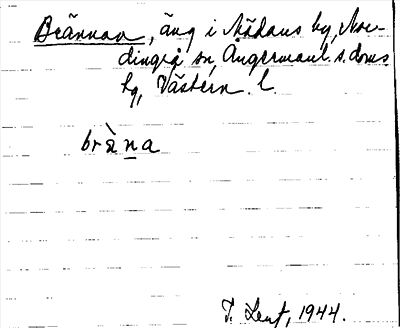 Brännan, äng i Mädans by, Nor-
dingrå sn, Ångermanl. s. doms.
hg, Västern. l.
brä̀n̲a
J. Lent, 1944.